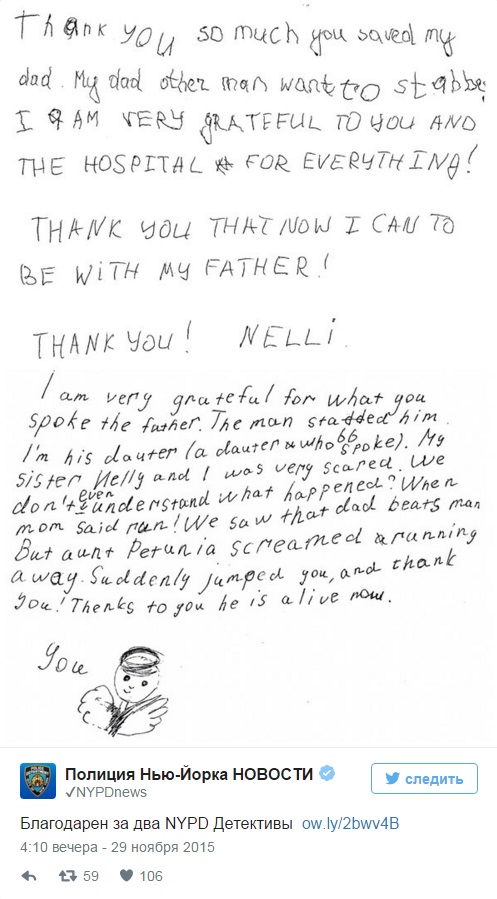 Thank you so much you saved my
dad. My dad other man want to stabbe
I AM VERY GRATEFUL TO YOU AND
THE HOSPITAL FOR EVERYTHING!
THANK YOU THAT NOW I CAN TO
BE WITH MY FATHER!
THANK YOU! NELLI.
I am very grateful for what you
spoke the father. The man stadded him.
I'm his dauter (a dauter who spoke). My
bb
sister Nelly and I was very scared. We
don't even understand what happened? When
mom said run! We saw that dad beats man
But aunt Petunia screamed running
away. Suddenly jumped you, and thank
you! Thenks to you he is alive now.
You
Полиция Нью-Йорка НОВОСТИ
✓NYPDnews
следить
Благодарен за два NYPD Детективы ow.ly/2bwv4B
4:10 вечера - 29 ноября 2015
59 106